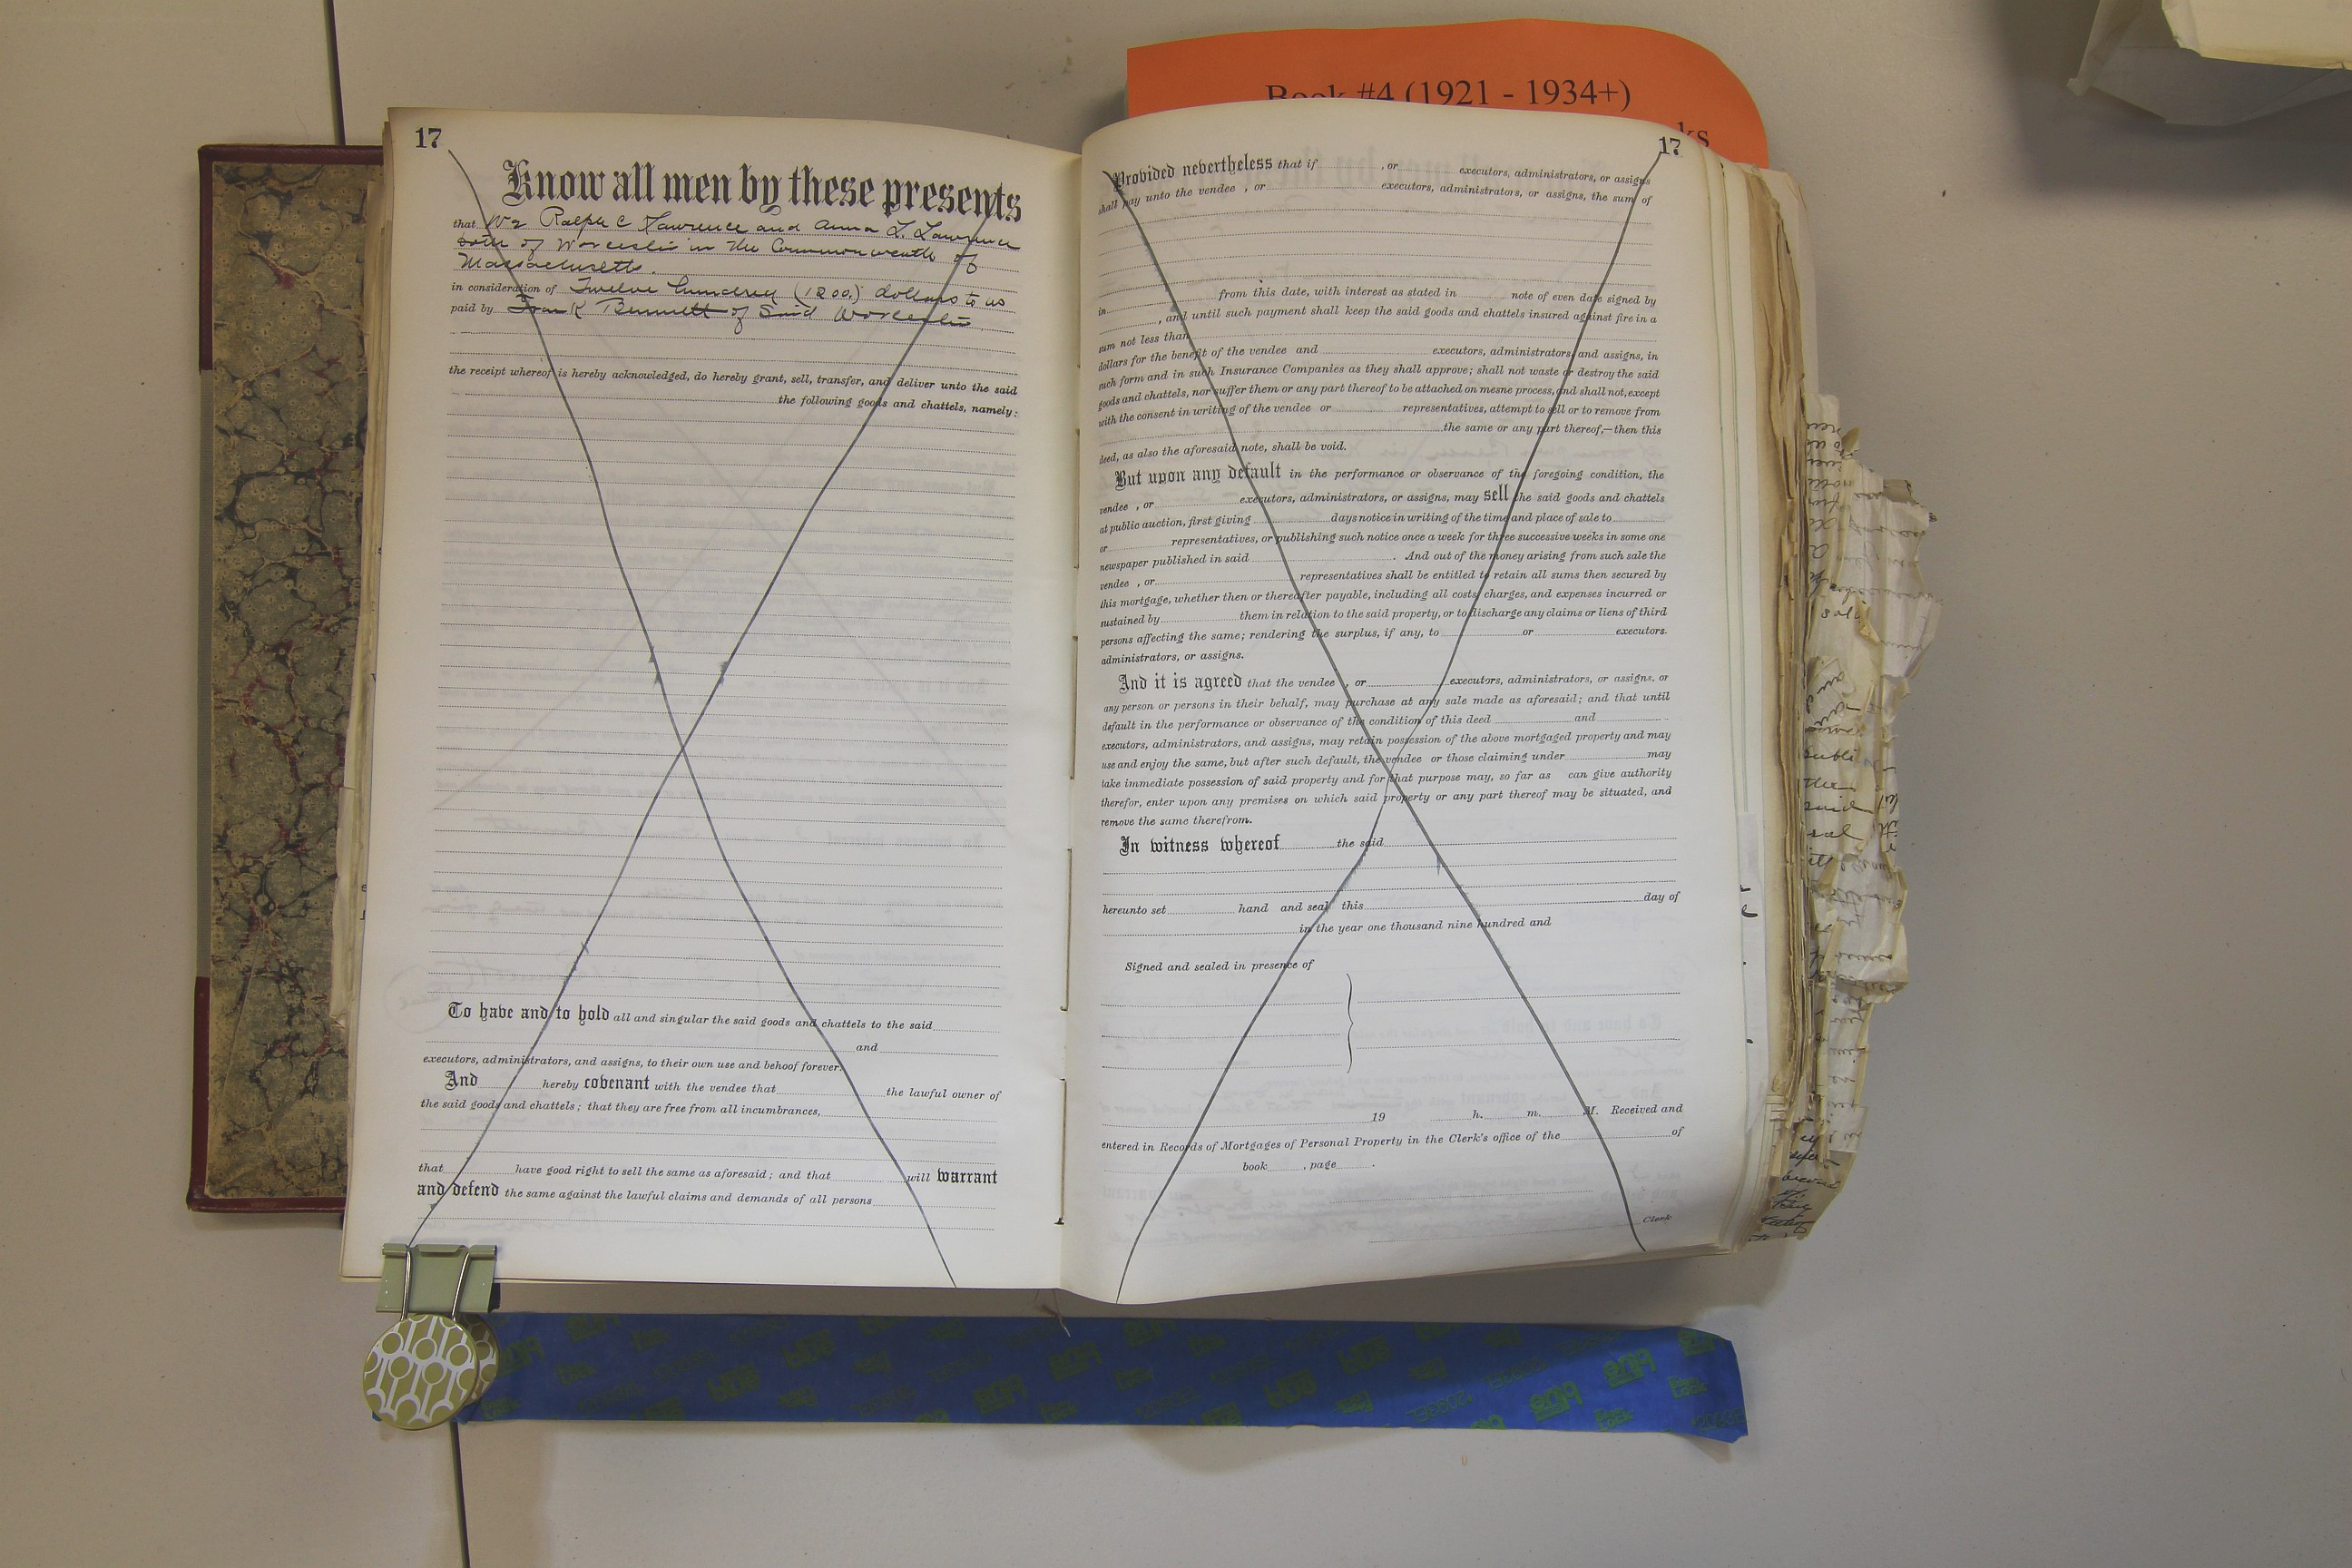 Book #4 (1921 - 1934+)
ks
17
Know all men by these presents
that We Ralph C Lawrence and Anna L. Lawrence
both of Worcester in the Commonwealth of
Massachusetts.
in consideration of Twelve hundred (1200.) dollars to us
paid by Frank Bennett of Said Worcester
the receipt whereof is hereby acknowledged, do hereby grant, sell, transfer, and deliver unto the said
the following goods and chattels, namely:
To have and to hold all and singular the said goods and chattels to the said
and
executors, administrators, and assigns, to their own use and behoof forever.
And hereby covenant with the vendee that the lawful owner of
the said goods and chattels; that they are free from all incumbrances,
that have good right to sell the same as aforesaid; and that will warrant
and defend the same against the lawful claims and demands of all persons
17
Provided nevertheless that if , or executors, administrators, or assigns
shall pay unto the vendee , or executors, administrators, or assigns, the sum of
in from this date, with interest as stated in note of even date signed by
, and until such payment shall keep the said goods and chattels insured against fire in a
sum not less than
dollars for the benefit of the vendee and executors, administrators, and assigns, in
such form and in such Insurance Companies as they shall approve; shall not waste or destroy the said
goods and chattels, nor suffer them or any part thereof to be attached on mesne process, and shall not, except
with the consent in writing of the vendee or representatives, attempt to sell or to remove from
the same or any part thereof,—then this
deed, as also the aforesaid note, shall be void.
But upon any default in the performance or observance of the foregoing condition, the
vendee , or executors, administrators, or assigns, may sell the said goods and chattels
at public auction, first giving days notice in writing of the time and place of sale to
or representatives, or publishing such notice once a week for three successive weeks in some one
newspaper published in said . And out of the money arising from such sale the
vendee , or representatives shall be entitled to retain all sums then secured by
this mortgage, whether then or thereafter payable, including all costs, charges, and expenses incurred or
sustained by them in relation to the said property, or to discharge any claims or liens of third
persons affecting the same; rendering the surplus, if any, to or executors.
administrators, or assigns.
And it is agreed that the vendee , or executors, administrators, or assigns, or
any person or persons in their behalf, may purchase at any sale made as aforesaid; and that until
default in the performance or observance of the condition of this deed and
executors, administrators, and assigns, may retain possession of the above mortgaged property and may
use and enjoy the same, but after such default, the vendee or those claiming under may
take immediate possession of said property and for that purpose may, so far as can give authority
therefor, enter upon any premises on which said property or any part thereof may be situated, and
remove the same therefrom.
In witness whereof the said
hereunto set hand and seal this day of
in the year one thousand nine hundred and
Signed and sealed in presence of
19 h. m. M. Received and
entered in Records of Mortgages of Personal Property in the Clerk's office of the of
book , page .
Clerk